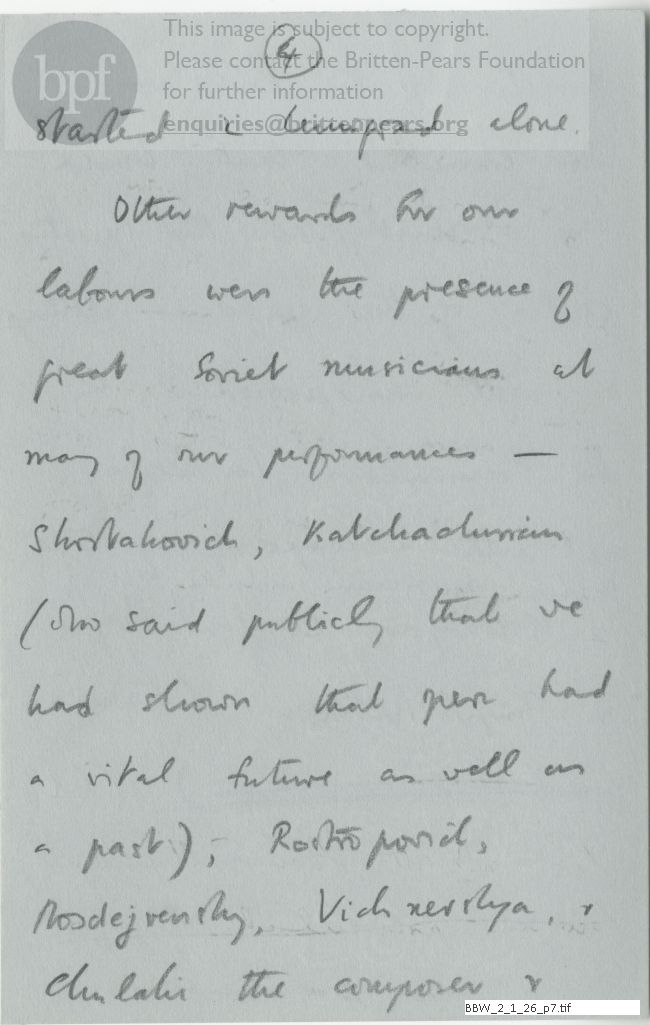 This image is subject to copyright.
4
Please contact the Britten-Pears Foundation
bpf
for further information
enquiries@brittenpears.org
started alone.
Other rewards for our
labours were the presence of
great Soviet musicians at
many of our performances —
Shostakovich, Katchachurian
(who said publicly that we
had shown that opera had
a vital future as well as
a past), Rostropovich,
Rosdejvensky, Vichnevskya, &
Chulaki the composer &
BBW_2_1_26_p7.tif